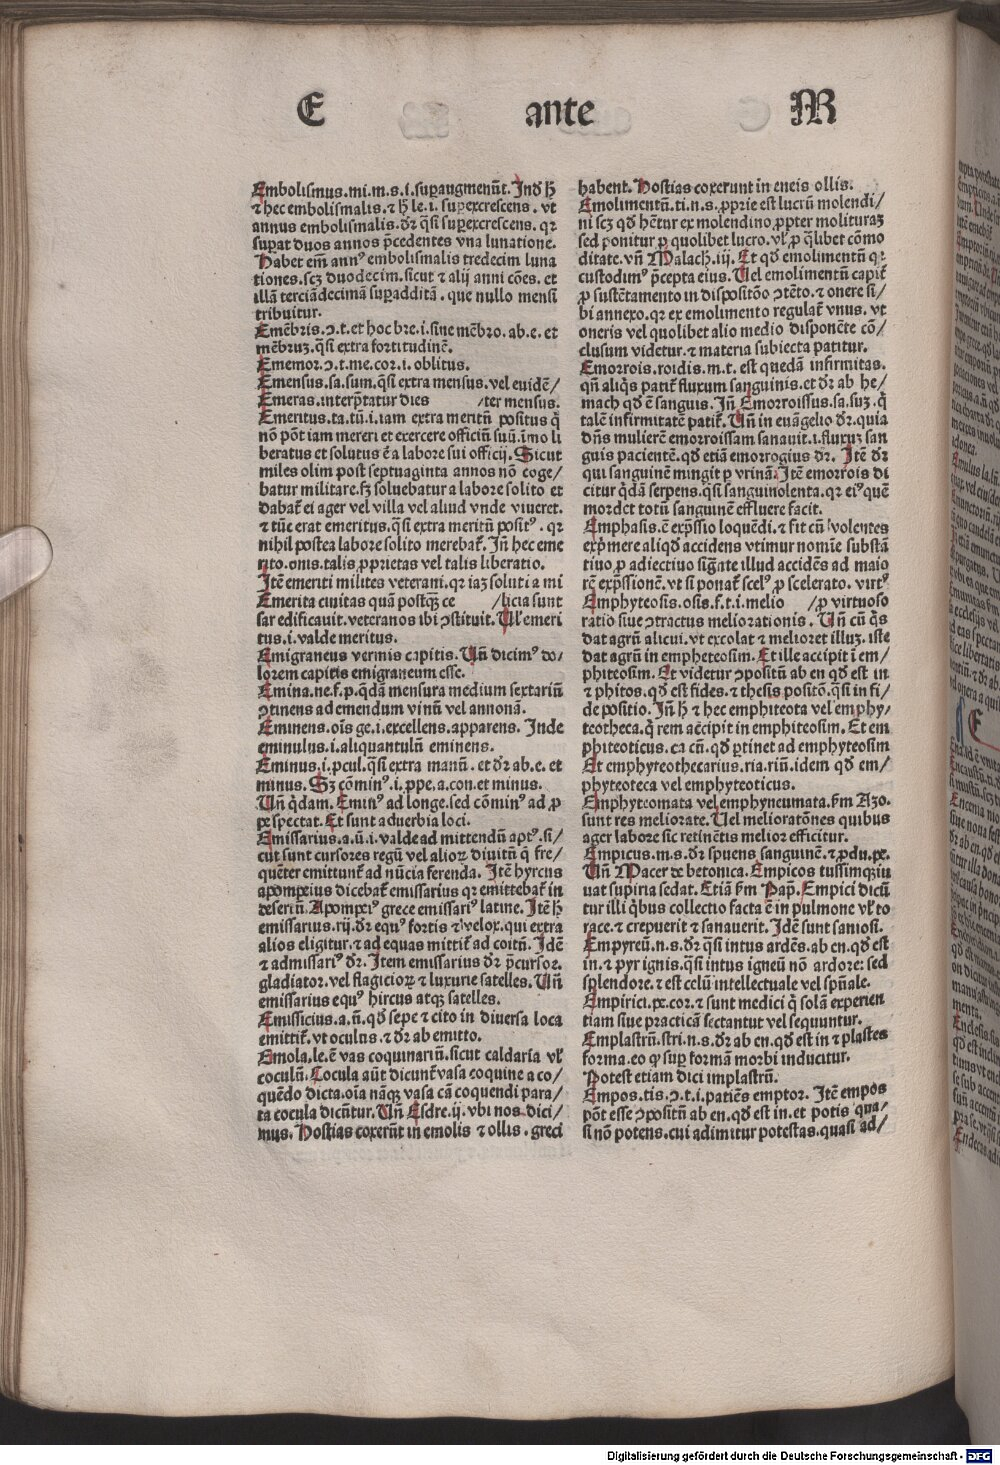 E ante M
Embolismus.mi.m.s.i.suꝑaugmenũt. Inď ħ
⁊ hec embolismalis.⁊ ħ le.i. suꝑexcrescens. vt
annus embolismalis. dr̄ q̃si suꝑexcrescens. qꝛ
suꝑat duos annos p̄cedentes vna lunatione.
Habet em̄ annꝰ embolismalis tredecim luna
tiones.scꝫ duodecim.sicut ⁊ alij anni cōes. et
illã terciãdecimã suꝑadditã. que nullo mensi
tribuitur.
Emēbris.ↄ.t.et hoc bre.i.sine mēbro.ab.e.et
mēbruꝫ.q̃si extra fortitudinē.
Ememor.ↄ.t.me.cor.i. oblitus.
Emensus.sa.sum.q̃si extra mensus.vel euidē/
Emeras.interp̃tatur dies /ter mensus.
Emeritus.ta.tũ.i.iam extra meritũ positus q̇
nō pōt iam mereri et exercere officiũ suũ.imo li
beratus et solutus ē a labore sui officij. Sicut
miles olim post septuaginta annos nō coge/
batur militare.sꝫ soluebatur a labore solito et
dabat̃ ei ager vel villa vel aliud vnde viueret.
⁊ tũc erat emeritus.q̃si extra meritũ positꝰ. qꝛ
nihil postea labore solito merebat̃. Iñ hec eme
rito.onis.talis ꝓprietas vel talis liberatio.
Itē emeriti milites veterani.qꝛ iaꝫ soluti a mi
Emerita ciuitas quã postq̃ꝫ ce /licia sunt
sar edificauit.veteranos ibi ↄstituit. Vl̃ emeri
tus.i.valde meritus.
Emigraneus vermis capitis. Uñ dicimꝰ do/
lorem capitis emigraneum esse.
Emina.ne.f.p.q̃dã mensura medium sextariũ
ↄtinens ad emendum vinũ vel annonã.
Eminens.oīs ge.i.excellens.apparens. Inde
eminulus.i.aliquantulũ eminens.
Eminus.i.pcul.q̃si extra manũ. et dr̄ ab.e.et
minus. Sꝫ cōminꝰ.i.ꝓpe.a.con.et minus.
Uñ q̇dam. Eminꝰ ad longe.sed cōminꝰ ad ꝓ
pe spectat. Et sunt aduerbia loci.
Emissarius.a.ũ.i.valde ad mittendũ aptꝰ.si/
cut sunt cursores regũ vel alioꝝ diuitũ q̇ fre/
quēter emittunt̃ ad nũcia ferenda. Itē hyrcus
apompeius dicebat̃ emissarius qꝛ emittebat̃ in
desertũ. Apompeiꝰ grece emissariꝰ latine. Itē ħ
emissarius.rij.dr̄ equꝰ fortis ⁊ velox.qui extra
alios eligitur.⁊ ad equas mittit̃ ad coitũ. Idē
⁊ admissariꝰ dr̄. Item emissarius dr̄ p̄cursor.
gladiator.vel flagicioꝝ ⁊ luxurie satelles. Uñ
emissarius equꝰ hircus atqꝫ satelles.
Emissicius.a.ũ.qď sepe ⁊ cito in diuersa loca
emittit̃.vt oculus.⁊ dr̄ ab emitto.
Emola.le.ē vas coquinariũ.sicut caldaria vl̃
coculũ. Cocula aũt dicunt̃ vasa coquine a co/
quēdo dicta.oīa nãqꝫ vasa cã coquendi para/
ta cocula dicũtur. Uñ Esdre.ij.vbi nos dici/
mus. Hostias coxerũt in emolis ⁊ ollis. greci
habent. Hostias coxerunt in eneis ollis.
Emolimentũ.ti.n.s.ꝓprie est lucrũ molendi/
ni scꝫ qď hētur ex molendino ꝓpter molituraꝫ
sed ponitur ꝓ quolibet lucro.vl̃ ꝓ q̃libet cōmo
ditate.vñ Malach.iij. Et qď emolimentũ qꝛ
custodimꝰ p̄cepta eius. Uel emolimentũ capit̃
ꝓ sustētamento in dispositōo ↄtēto.⁊ onere si/
bi annexo.qꝛ ex emolimento regulat̃ vnus. vt
oneris vel quolibet alio medio disponēte cō/
clusum videtur.⁊ materia subiecta patitur.
Emorrois.roidis.m.t. est quedã infirmitas.
qñ aliq̇s patit̃ fluxum sanguinis.et dr̄ ab he/
mach qď ē sanguis. Iñ Emorroissus.sa.suꝫ.q̇
talē infirmitatē patit̃. Uñ in euãgelio dr̄.quia
dñs mulierē emorroissam sanauit.i.fluxuꝫ san
guis pacientē.qď etiã emorrogius dr̄. Itē dr̄
qui sanguinē mingit ꝑ vrinã. Itē emorrois di
citur q̃dã serpens.q̃si sanguinolenta.qꝛ eiꝰ quē
mordet totũ sanguinē effluere facit.
Emphasis.ē exp̃ssio loquēdi.⁊ fit cũ volentes
exp̃mere aliqď accidens vtimur nomīe substã
tiuo ꝓ adiectiuo sig̃ate illud accidēs ad maio
rē exp̃ssionē.vt si ponat̃ scelꝰ ꝓ scelerato. virtꝰ
Emphyteosis.osis.f.t.i.melio /ꝓ virtuoso
ratio siue ↄtractus meliorationis. Uñ cũ q̇s
dat agrũ alicui.vt excolat ⁊ melioret illuꝫ. iste
dat agrũ in empheteosim. Et ille accipit ī em/
phiteosim. Et videtur ↄpositũ ab en qď est in
⁊ phitos.qď est fides.⁊ thesis positō.q̃si in fi/
de positio. Iñ ħ ⁊ hec emphiteota vel emphy/
teotheca.q̇ rem accipit in emphiteosim. Et em
phiteoticus.ca cũ.qď ꝑtinet ad emphyteosim
Et emphyteothecarius.ria.riũ.idem qď em/
phyteoteca vel emphyteoticus.
Emphyteomata vel emphyneumata.ẜm Azo.
sunt res meliorate. Uel melioratōnes quibus
ager labore sic retinētis melior efficitur.
Empicus.m.s.dr̄ spuens sanguinē.⁊ ꝓdu.pe.
Uñ Macer de betonica. Empicos tussimqꝫ iu
uat supiria sedat. Etiã ẜm Pap̃. Empici dicũ
tur illi q̇bus collectio facta ē in pulmone vl̃ to
race.⁊ crepuerit ⁊ sanauerit. Idē sunt saniosi.
Empyreũ.n.s.dr̄ q̃si intus ardēs.ab en.qď est
in.⁊ pyr ignis.q̃si intus igneũ nō ardore: sed
splendore.⁊ est celũ intellectuale vel spũale.
Empirici.pe.cor.⁊ sunt medici q̇ solã experien
tiam siue practicã sectantur vel sequuntur.
Emplastrũ.stri.n.s.dr̄ ab en.qď est in ⁊ plastes
forma.eo ꝙ suꝑ formã morbi inducitur.
Potest etiam dici implastrũ.
Empos.tis.ↄ.t.i.patiēs emptor. Itē empos
pōt esse ↄpositũ ab en.qď est in.et potis qua/
si nō potens.cui adimitur potestas.quasi ad/
Digitalisierung gefördert durch die Deutsche Forschungsgemeinschaft - DFG